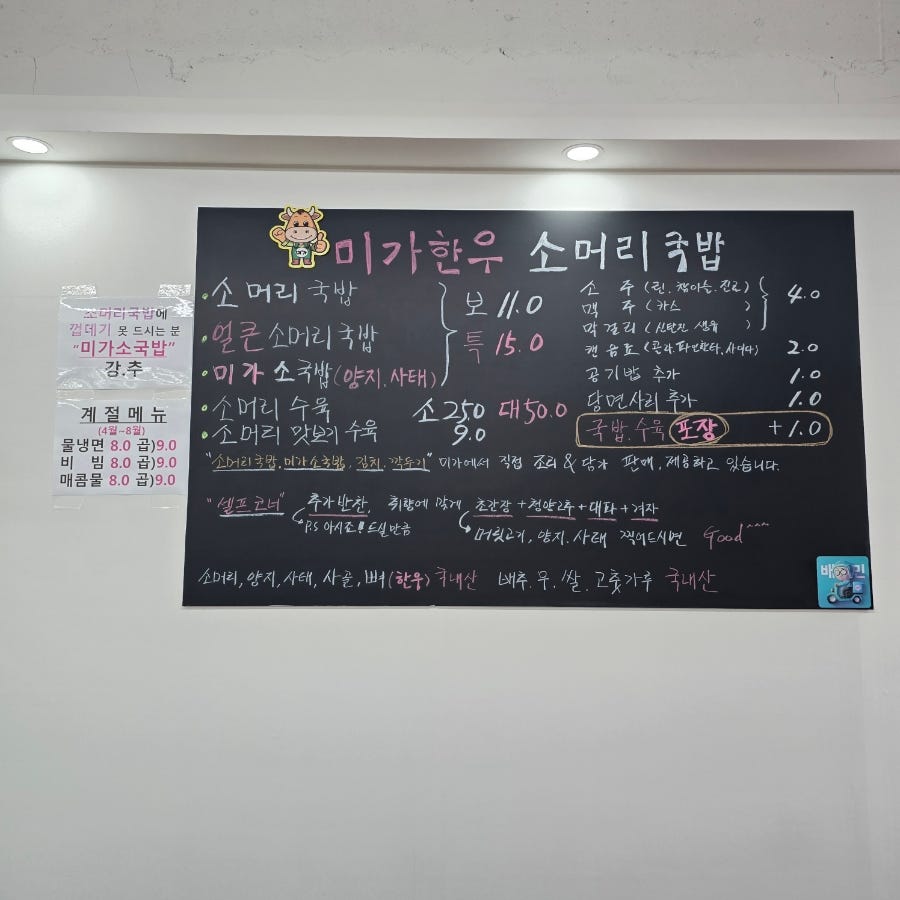 미가한우 소머리국밥
·소머리국밥
·얼큰 소머리국밥
·미가 소국밥(양지.사태)
보 11.0
특 15.0
·소머리 수육 소 250 대 50.0
·소머리 맛보기 수육 9.0
소 주 (린.참이슬.진로)
맥 주 (카스 )
막걸리 (신탄진 생유)
4.0
캔음료 (콜라.파인환타.사이다) 2.0
공기밥 추가 1.0
당면사리 추가 1.0
국밥.수육 포장 +1.0
"소머리국밥.미가소국밥, 김치.깍두기" 미가에서 직접 조리 & 담가 판매, 제공하고 있습니다.
"셀프코너" 추가반찬, 취향에 맞게 초간장+청양고추+대파+겨자
P.S 아시죠! 드실만큼 머릿고기, 양지.사태 찍어드시면 Good^^^
소머리, 양지, 사태, 사골, 뼈(한우) 국내산 배추.무.쌀.고춧가루 국내산
소머리국밥에
껍데기 못 드시는 분
"미가소국밥"
강.추
계절메뉴
(4월~8월)
물냉면 8.0 곱)9.0
비 빔 8.0 곱)9.0
매콤물 8.0 곱)9.0